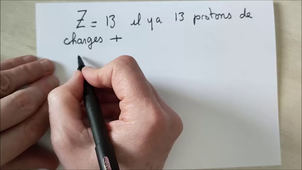 Z = 13 il y a 13 protons de
charges +